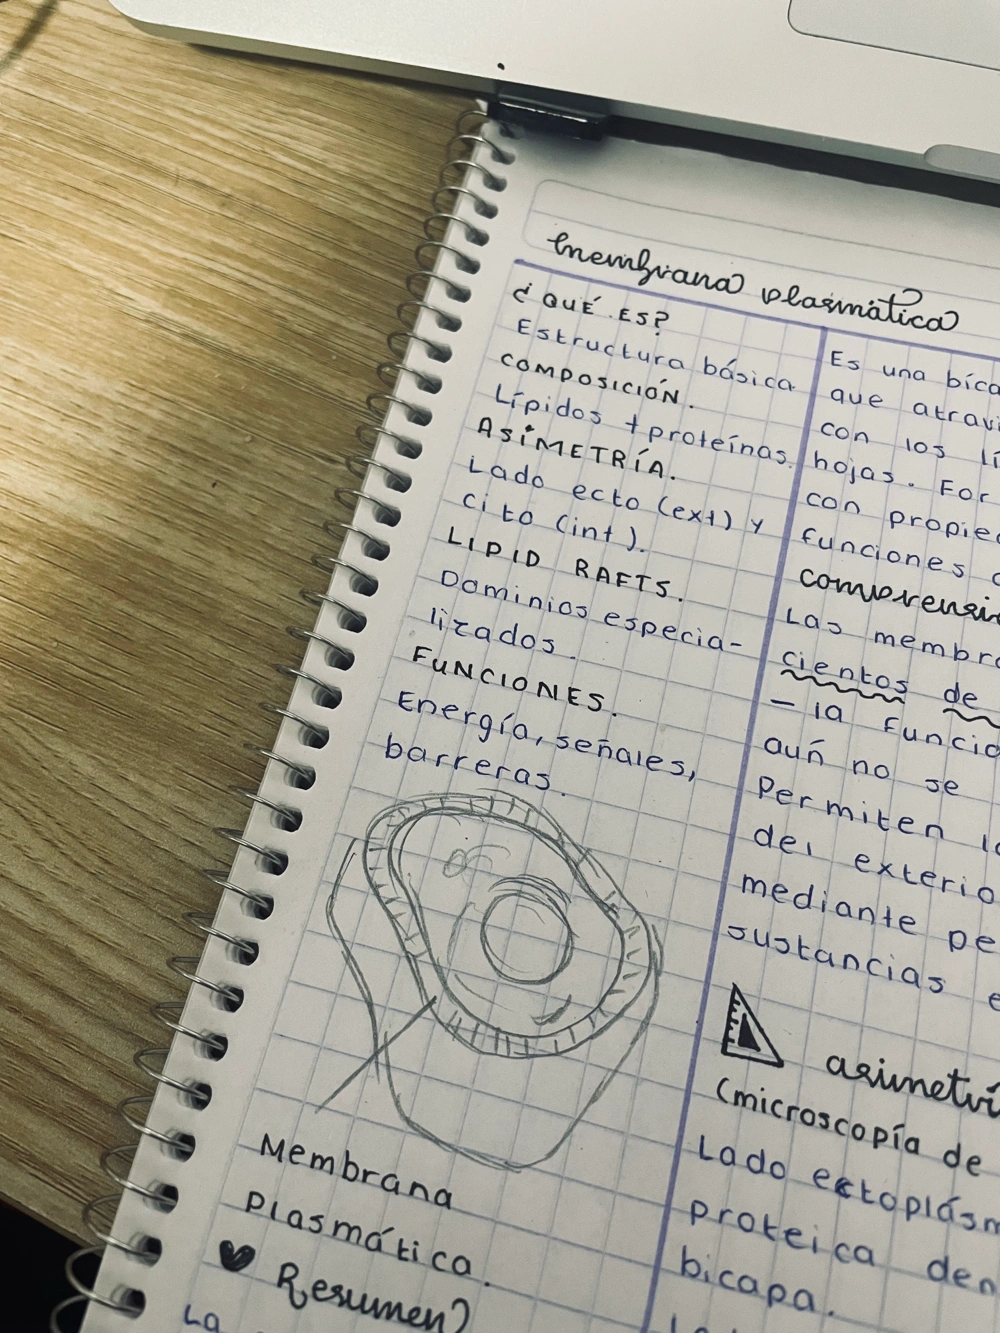 membrana plasmática
¿QUÉ ES?
Estructura básica
COMPOSICIÓN.
Lípidos + proteínas.
ASIMETRÍA.
Lado ecto (ext) y
cito (int).
LIPID RAFTS.
Dominios especia-
lizados.
FUNCIONES.
Energía, señales,
barreras.
Membrana
Plasmática.
Resumen
La
Es una
que
con los
hojas. For
con
funciones
Las
cientos de
- la
aún no se
Permiten
del
mediante
sustancias
(microscopía de
Lado
proteica
bicapa.